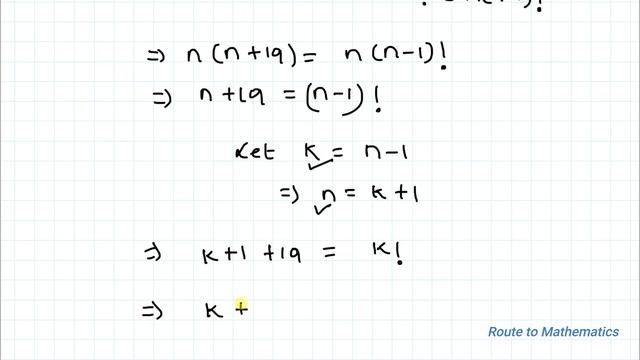 ⇒ n(n+19) = n(n-1)!
⇒ n+19 = (n-1)!
Let k = n-1
⇒ n = k+1
⇒ k+1+19 = k!
⇒ k+
Route to Mathematics